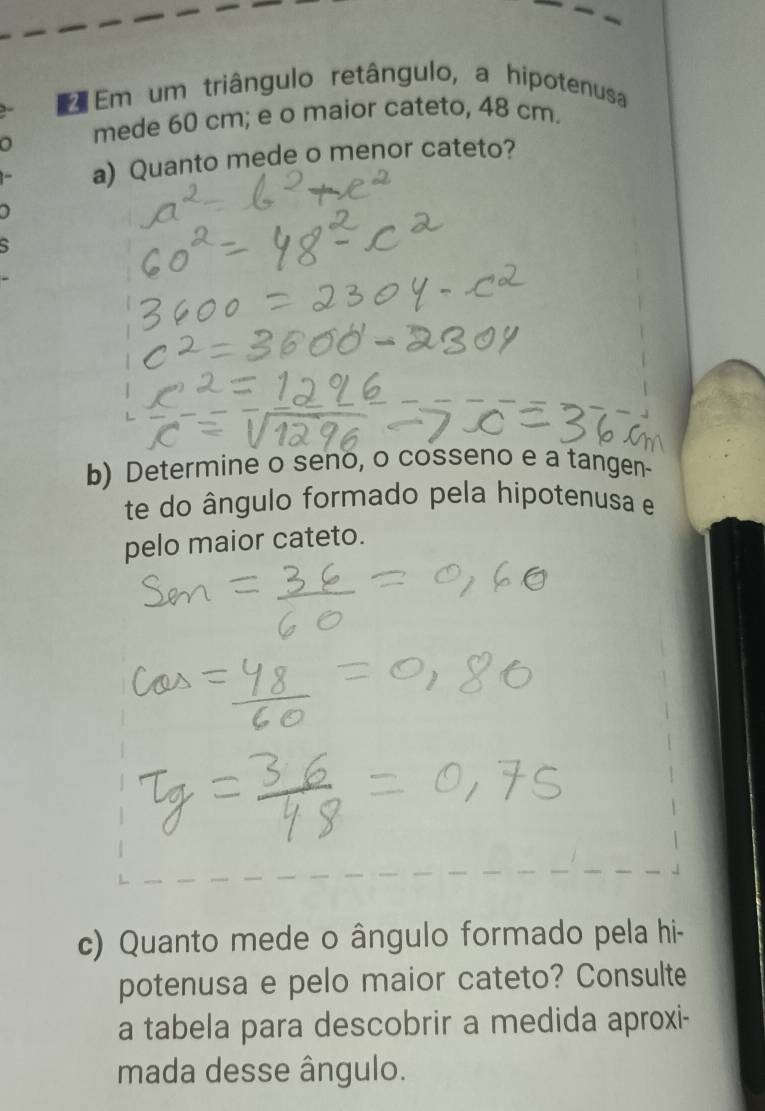 2 Em um triângulo retângulo, a hipotenusa
mede 60 cm; e o maior cateto, 48 cm.
a) Quanto mede o menor cateto?
a² = b² + c²
60² = 48² - c²
3600 = 2304 - c²
c² = 3600 - 2304
c² = 1296
c = √1296 → c = 36 cm
b) Determine o seno, o cosseno e a tangen-
te do ângulo formado pela hipotenusa e
pelo maior cateto.
Sen = 36/60 = 0,60
Cos = 48/60 = 0,80
Tg = 36/48 = 0,75
c) Quanto mede o ângulo formado pela hi-
potenusa e pelo maior cateto? Consulte
a tabela para descobrir a medida aproxi-
mada desse ângulo.